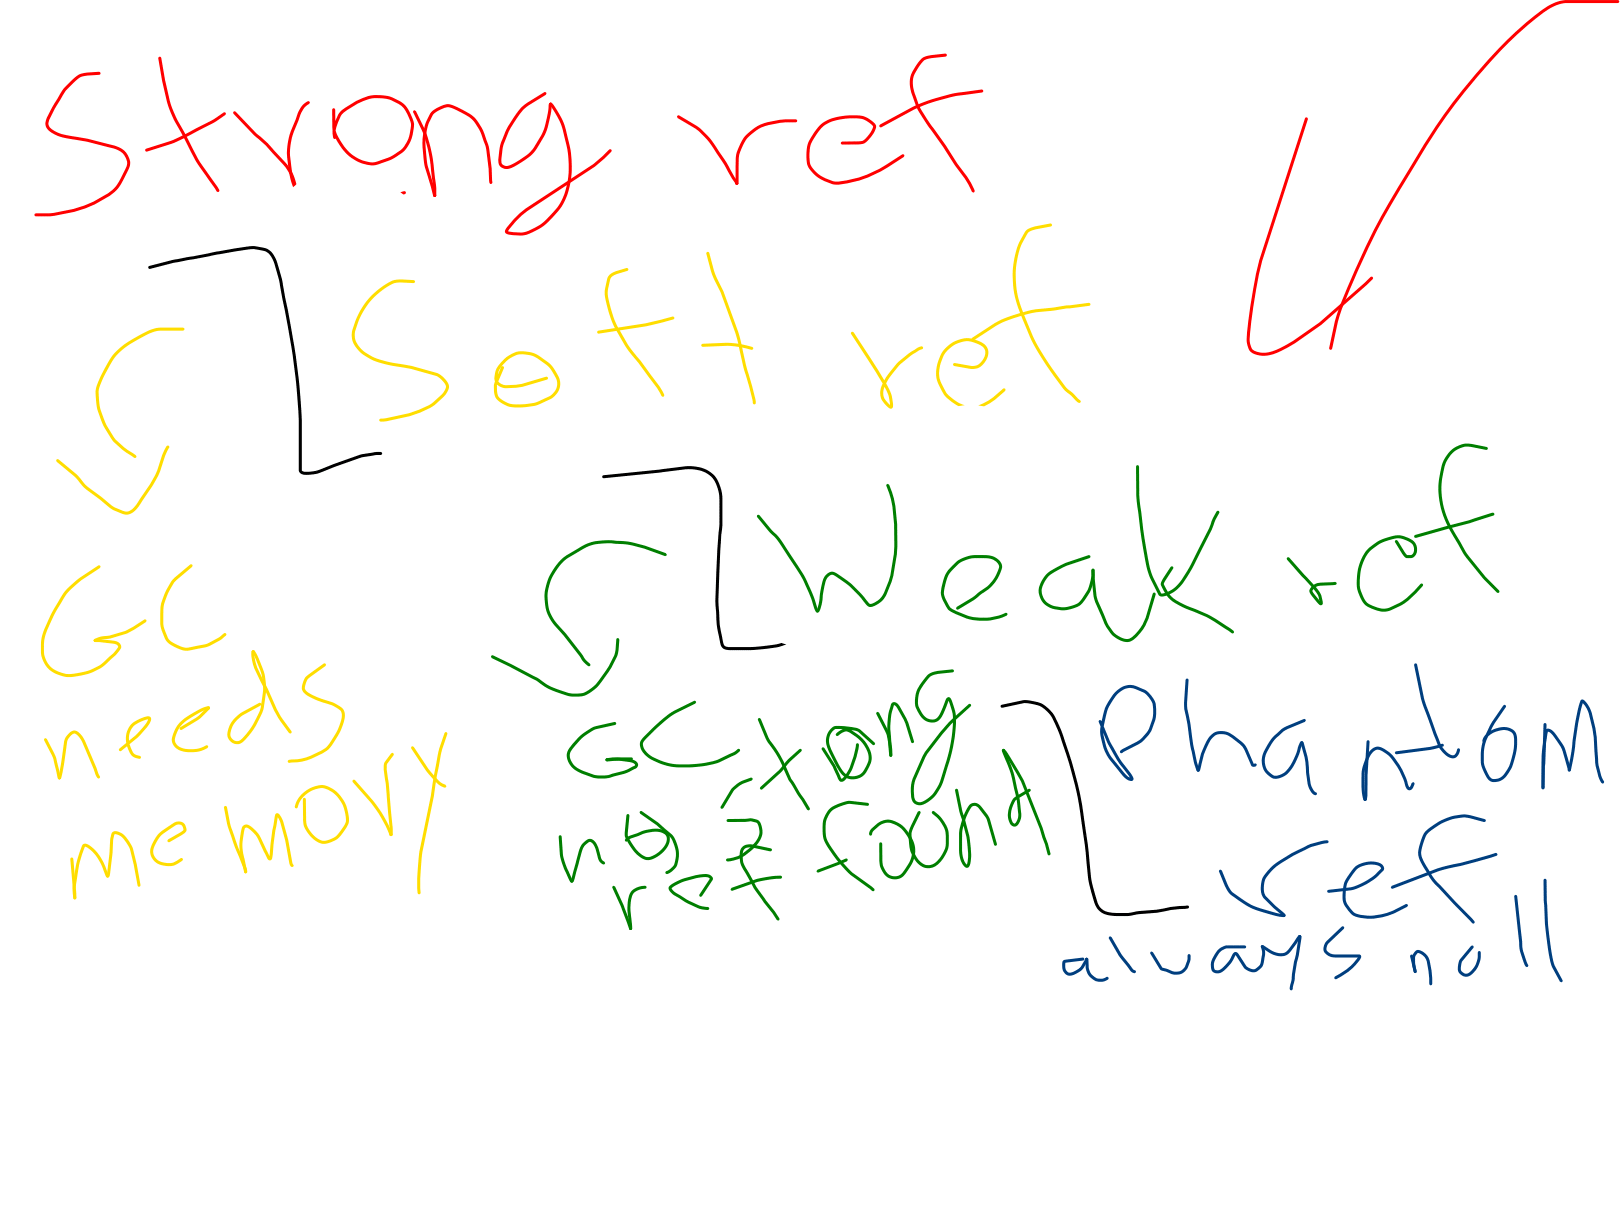 Strong ref
Soft ref
GC
needs
memory
Weak ref
GC
no strong
ref found
Phantom
ref
always null